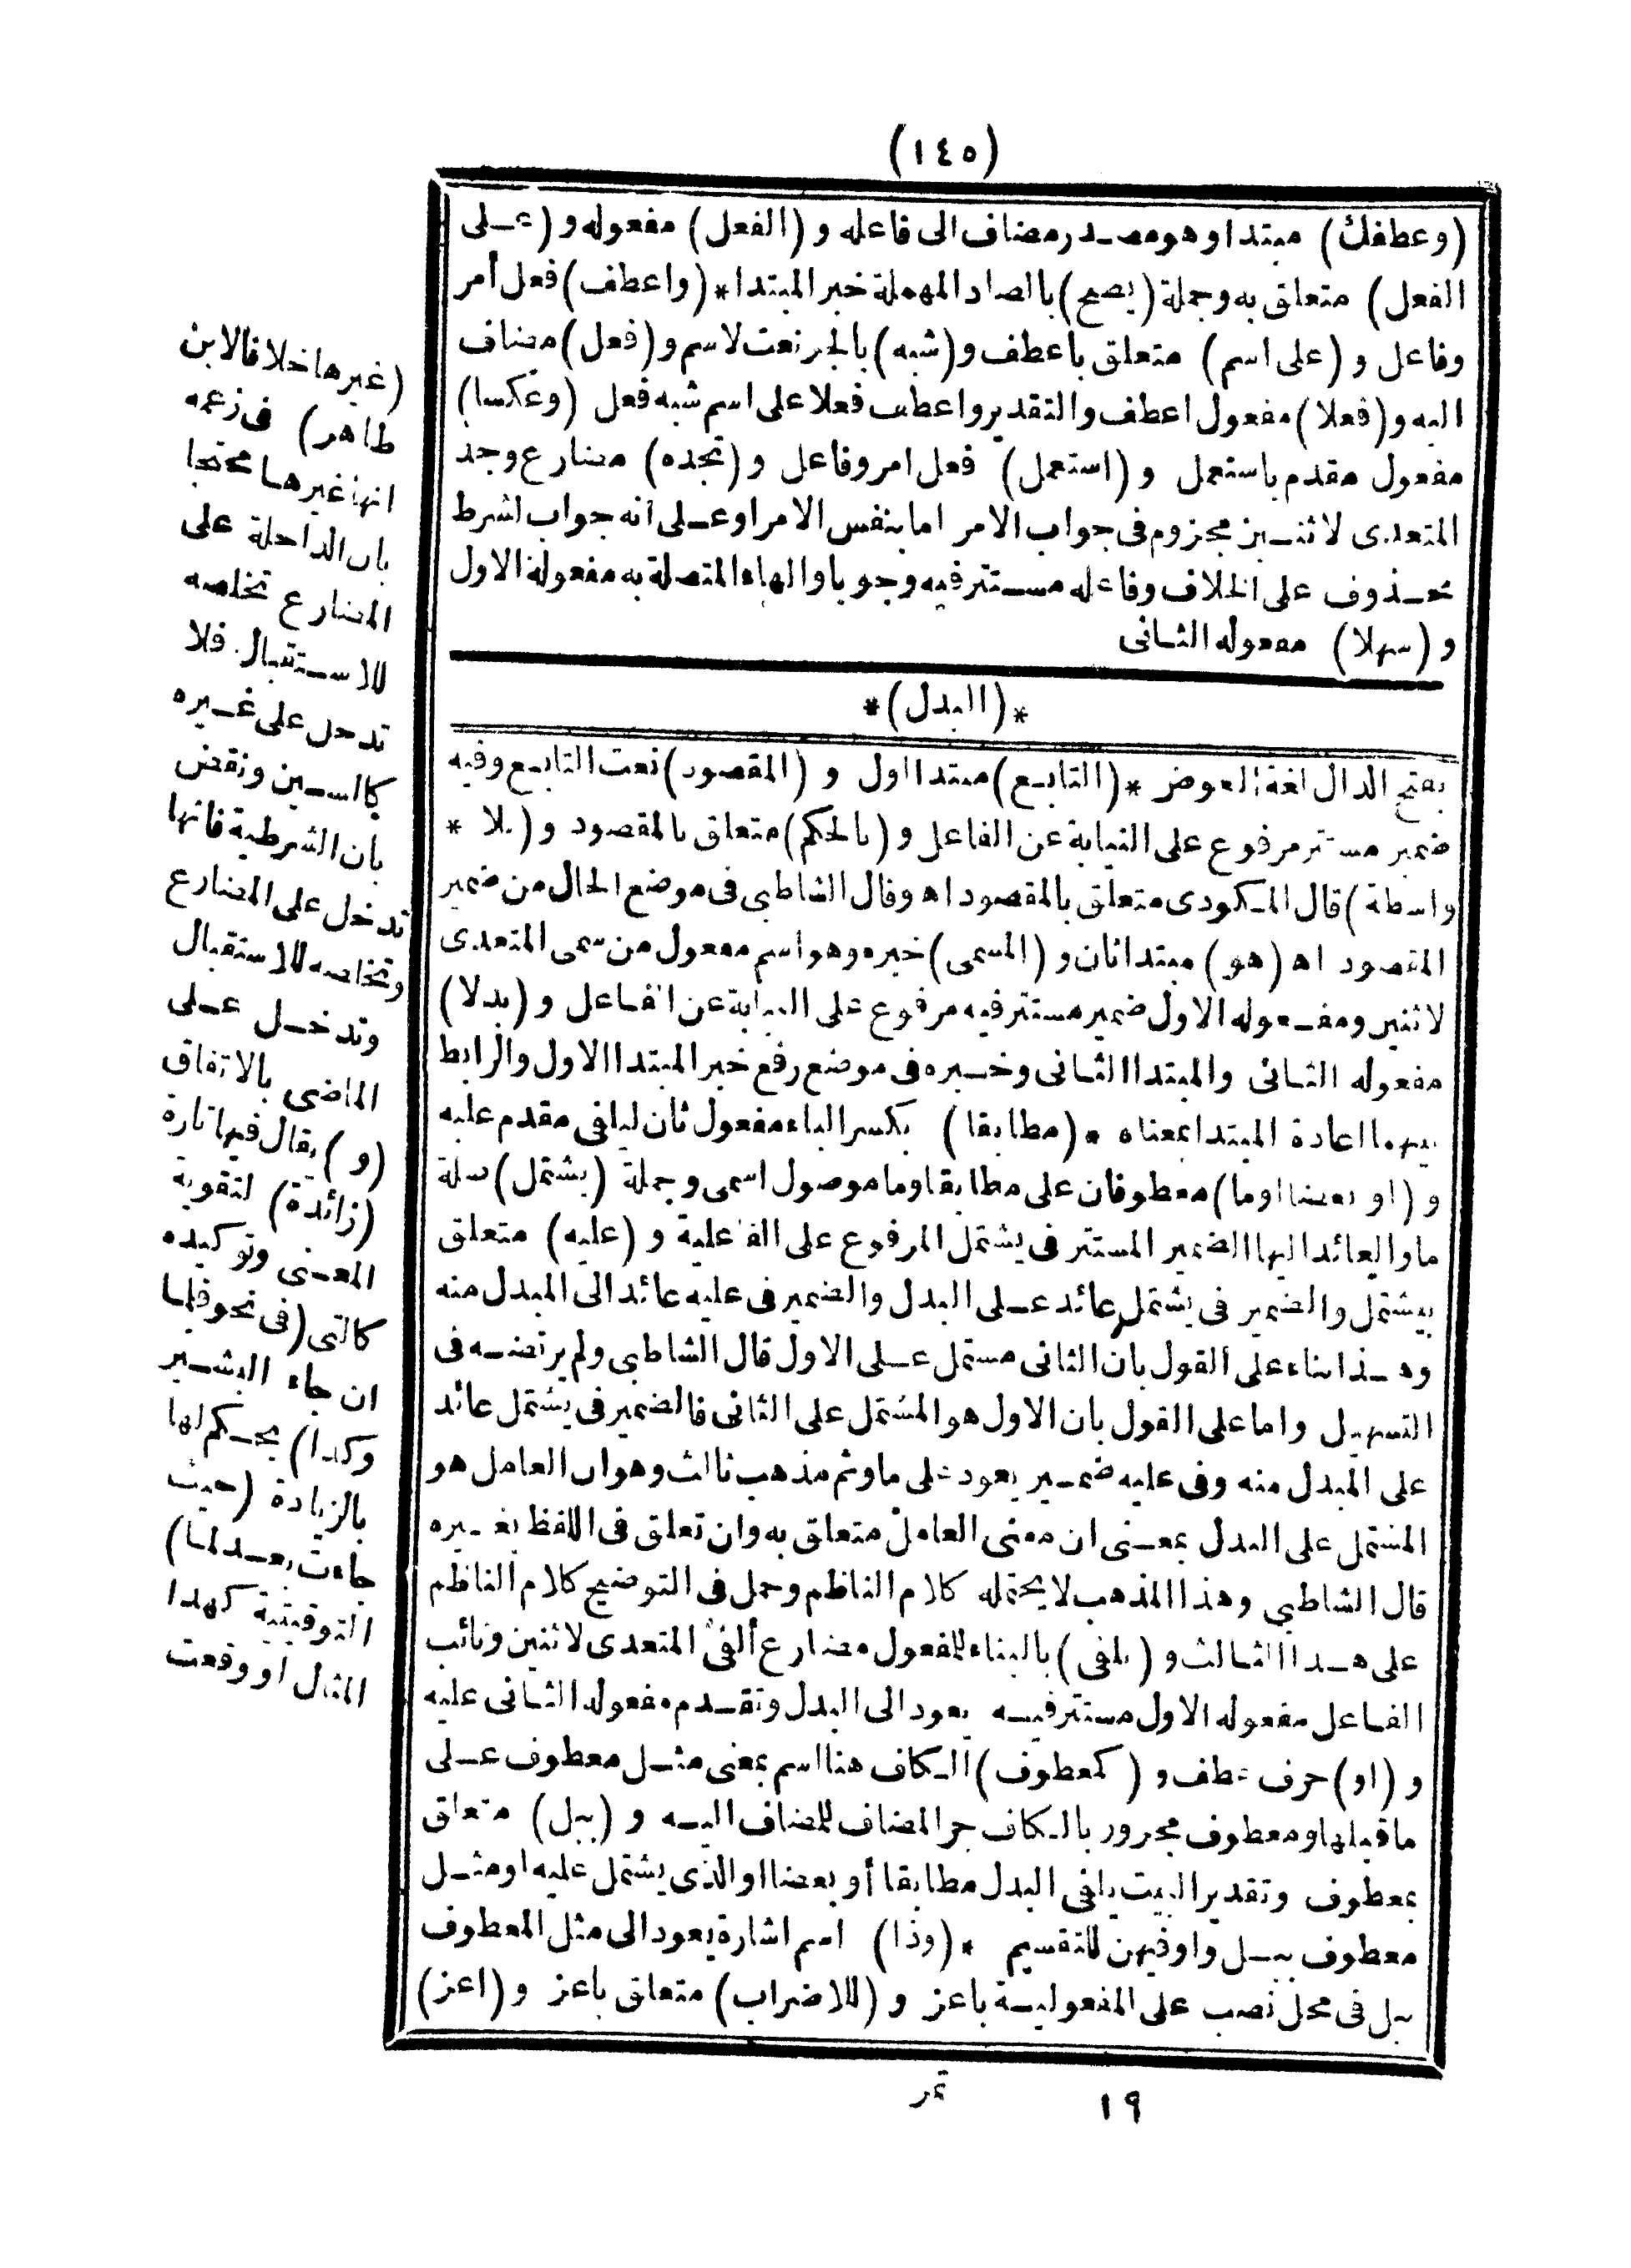 (١٤٥)
(وعطفك) مبتدا وهو مصدر مضاف الى فاعله و (الفعل) مفعوله و (على
الفعل) متعلق به وجملة (يصح) بالصاد المهملة خبر المبتدا * (واعطف) فعل أمر
وفاعل و (على اسم) متعلق باعطف و (شبه) بالجر نعت لاسم و (فعل) مضاف
اليه و (فعلا) مفعول اعطف والتقدير واعطف فعلا على اسم شبه فعل (وعكسا)
مفعول مقدم باستعمل و (استعمل) فعل امر وفاعل و (تجده) مضارع وجد
المتعدى لاثنين مجزوم فى جواب الامر اما بنفس الامر او على أنه جواب لشرط
محذوف على الخلاف وفاعله مستتر فيه وجوبا والهاء المتصلة به مفعوله الاول
و (سهلا) مفعوله الثانى
* (البدل) *
بفتح الدال لغة العوض * (التابع) مبتدا اول و (المقصود) نعت التابع وفيه
ضمير مستتر مرفوع على النيابة عن الفاعل و (بالحكم) متعلق بالمقصود و (بلا *
واسطة) قال المكودى متعلق بالمقصود اه وقال الشاطبى فى موضع الحال من ضمير
المقصود اه (هو) مبتدا ثان و (المسمى) خبره وهو اسم مفعول من سمى المتعدى
لاثنين ومفعوله الاول ضمير مستتر فيه مرفوع على النيابة عن الفاعل و (بدلا)
مفعوله الثانى والمبتدا الثانى وخبره فى موضع رفع خبر المبتدا الاول والرابط
بينهما اعادة المبتدا بمعناه * (مطابقا) بكسر الباء مفعول ثان ليلفى مقدم عليه
و (او بعضا او ما) معطوفان على مطابقا وما موصول اسمى وجملة (يشتمل) صلة
ما والعائد اليها الضمير المستتر فى يشتمل المرفوع على الفاعلية و (عليه) متعلق
بيشتمل والضمير فى يشتمل عائد على البدل والضمير فى عليه عائد الى المبدل منه
وهذا بناء على القول بان الثانى مشتمل على الاول قال الشاطبى ولم يرتضه فى
التسهيل واما على القول بان الاول هو المشتمل على الثانى فالضمير فى يشتمل عائد
على المبدل منه وفى عليه ضمير يعود على ما وثم مذهب ثالث وهو ان العامل هو
المشتمل على البدل بمعنى ان معنى العامل متعلق به وان تعلق فى اللفظ بغيره
قال الشاطبى وهذا المذهب لا يحتمله كلام الناظم وحمل فى التوضيح كلام الناظم
على هذا الثالث و (يلفى) بالبناء للمفعول مضارع ألفى المتعدى لاثنين ونائب
الفاعل مفعوله الاول مستتر فيه يعود الى البدل وتقدم مفعوله الثانى عليه
و (او) حرف عطف و (كمعطوف) الكاف هنا اسم بمعنى مثل معطوف على
ما قبلها ومعطوف مجرور بالكاف جر المضاف للمضاف اليه و (ببل) متعلق
بمعطوف وتقدير البيت يلفى البدل مطابقا أو بعضا او الذى يشتمل عليه او مثل
معطوف ببل واو فيهن للتقسيم * (وذا) اسم اشارة يعود الى مثل المعطوف
ببل فى محل نصب على المفعولية باعز و (للاضراب) متعلق باعز و (اعز)
١٩ تمر
(غيرها خلافا لابن
طاهر) فى زعمه
انها غيرها محتجا
بان الداخلة على
المضارع تخلصه
للاستقبال فلا
تدخل على غيره
كالسين ونقض
بان الشرطية فانها
تدخل على المضارع
وتخلصه للاستقبال
وتدخل على
الماضى بالاتفاق
(و) يقال فيها تارة
(زائدة) لتقوية
المعنى وتوكيده
كالتى (فى نحو فلما
ان جاء البشير
وكذا) يحكم لها
بالزيادة (حيث
جاءت بعد لما)
التوقيتية كهذا
المثال او وقعت